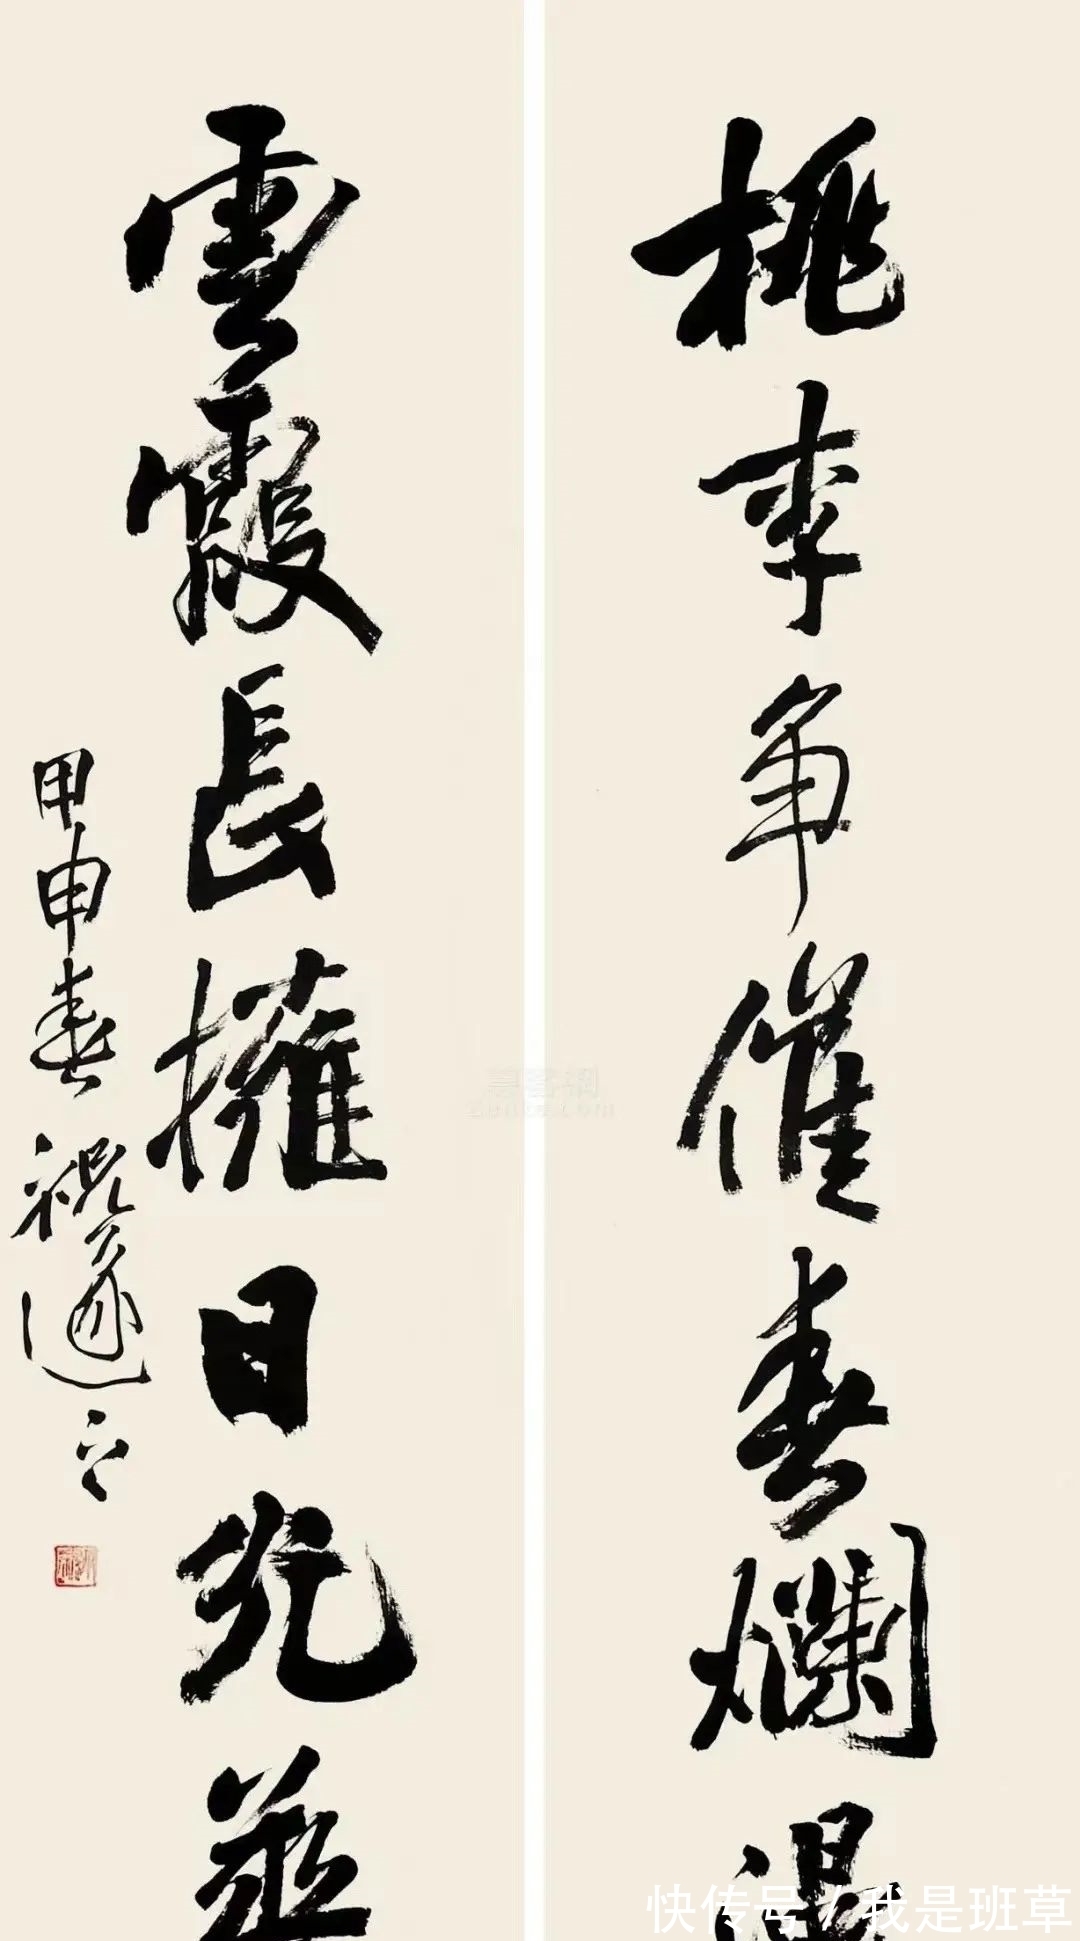 桃李争催春爛漫
雲霞長擁日光華
甲申春祝遂之
快传号/我是班草